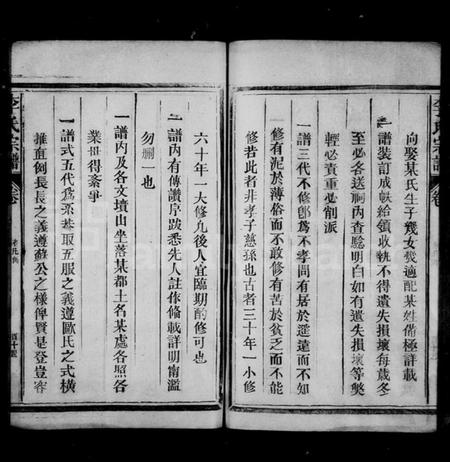 向娶某氏生子幾女幾適配某姓備極詳載
一譜裝訂成帙給領收執不得遺失損壞每歲冬
至必各送祠內查驗明白如有遺失損壞等獘
輕必責重必削派
一譜三代不修卽爲不孝間有居於遠遠而不知
修有泥於薄俗而不敢修有苦於貧乏而不能
修若此者非孝子慈孫也古者三十年一小修
六十年一大修凡後人宜臨期酌修可也
一譜內有傳讚序跋悉先人註作條載詳明甯濫
勿刪也
一譜內及各支墳山坐落某都土名某處各照各
業毋得紊爭
一譜式五代爲桼基取五服之義遵歐氏之式橫
推直例長長之義遵蘇公之樣俾賢是登豈容
李氏宗譜
卷